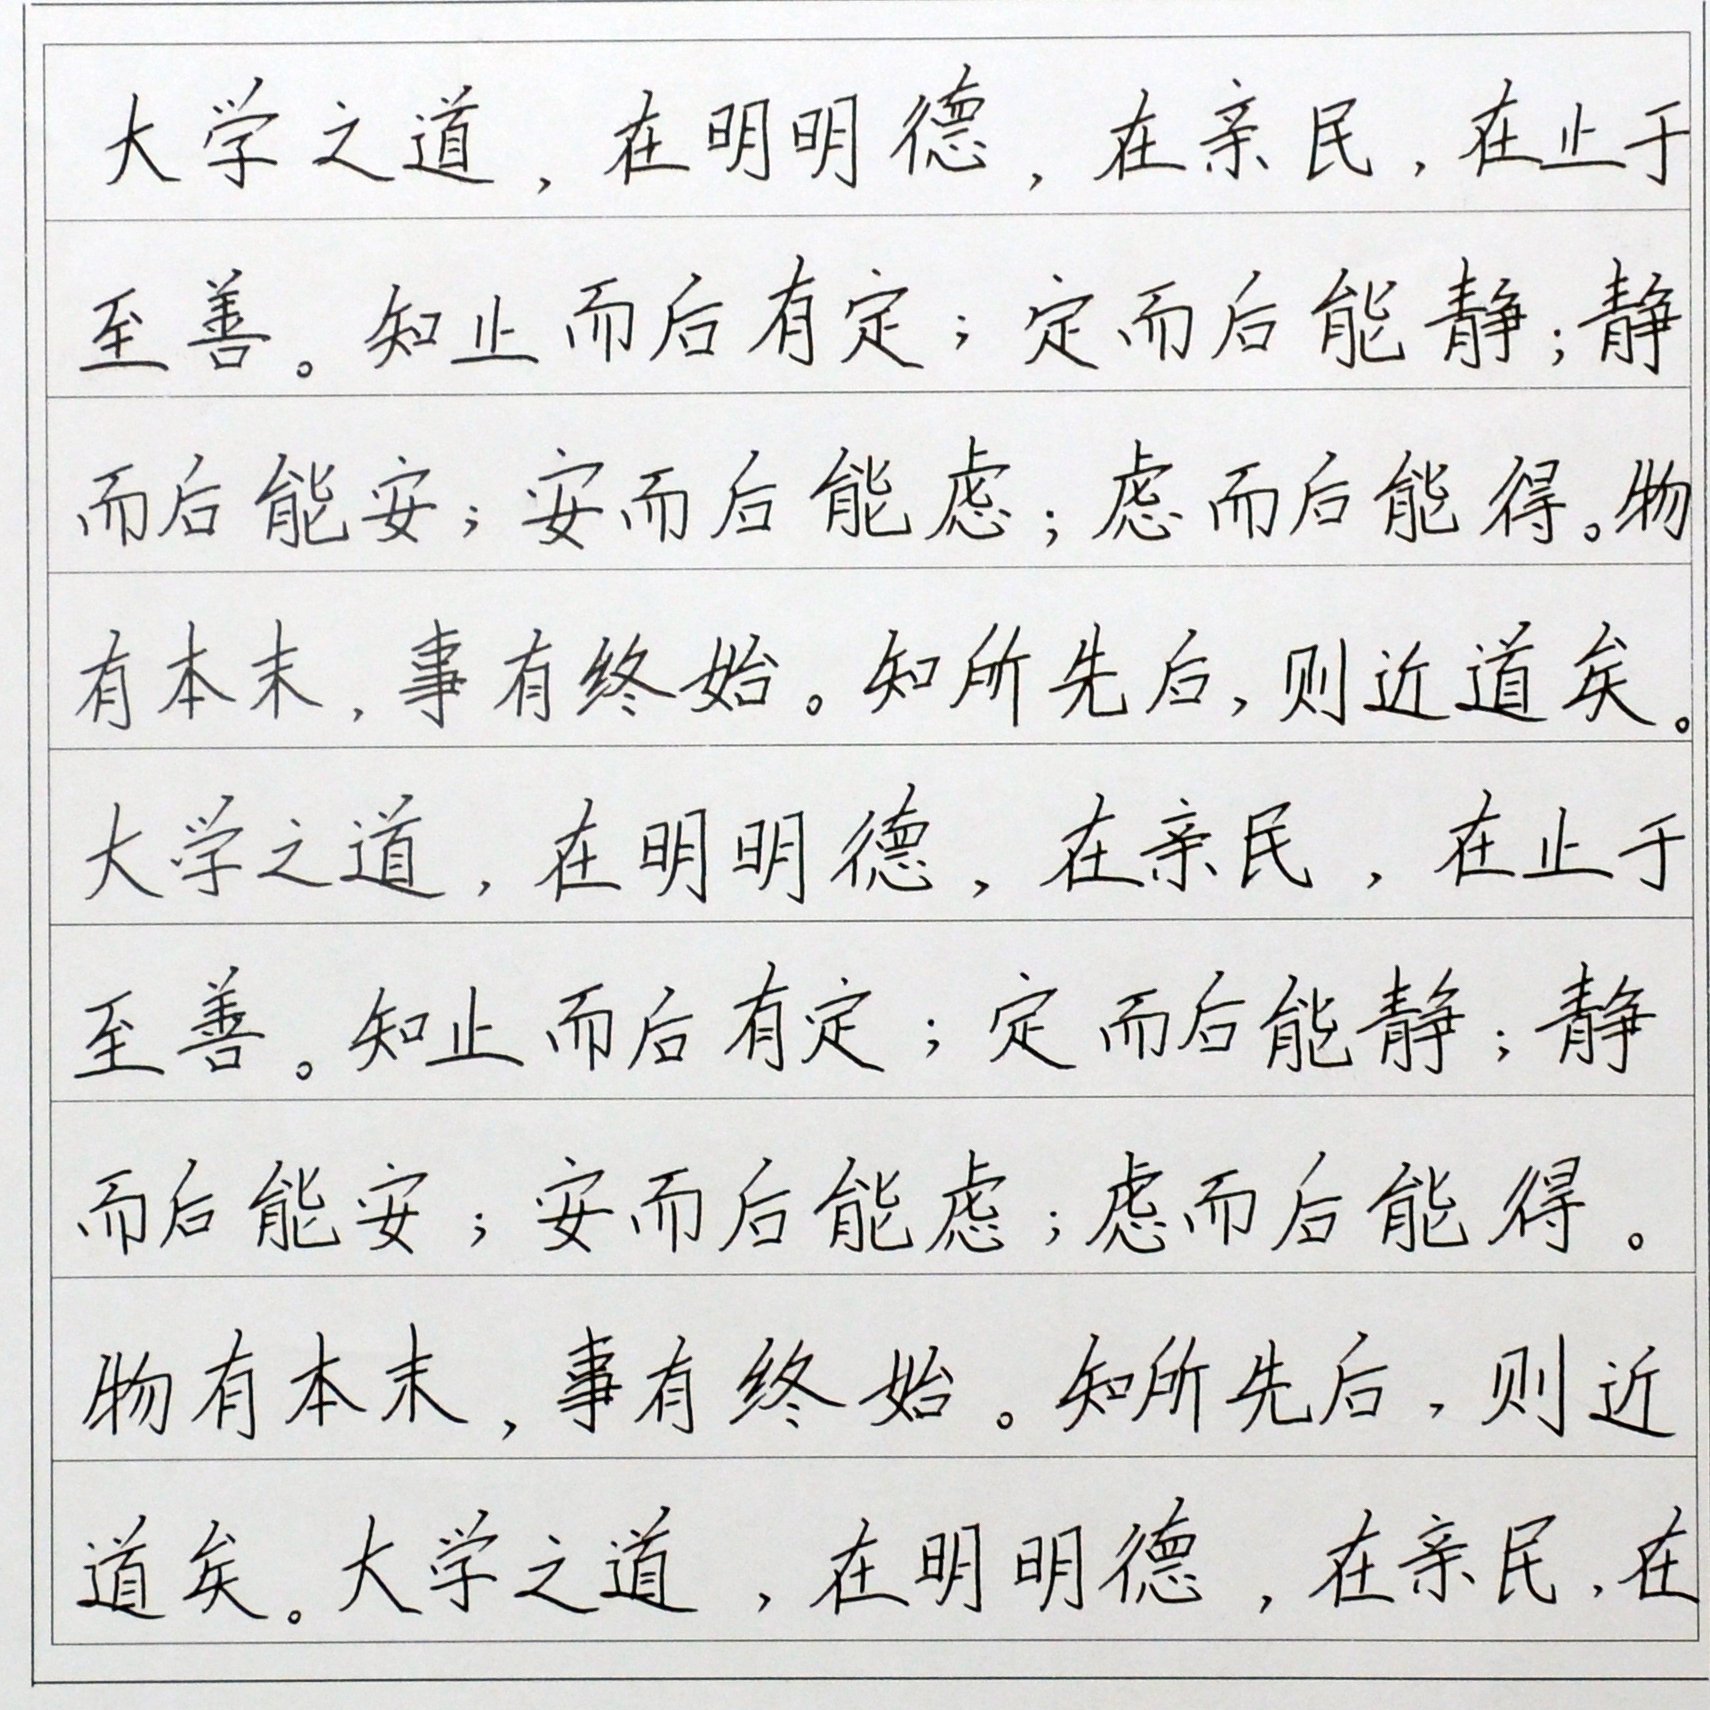 大学之道，在明明德，在亲民，在止于
至善。知止而后有定；定而后能静；静
而后能安；安而后能虑；虑而后能得。物
有本末，事有终始。知所先后，则近道矣。
大学之道，在明明德，在亲民，在止于
至善。知止而后有定；定而后能静；静
而后能安；安而后能虑；虑而后能得。
物有本末，事有终始。知所先后，则近
道矣。大学之道，在明明德，在亲民，在